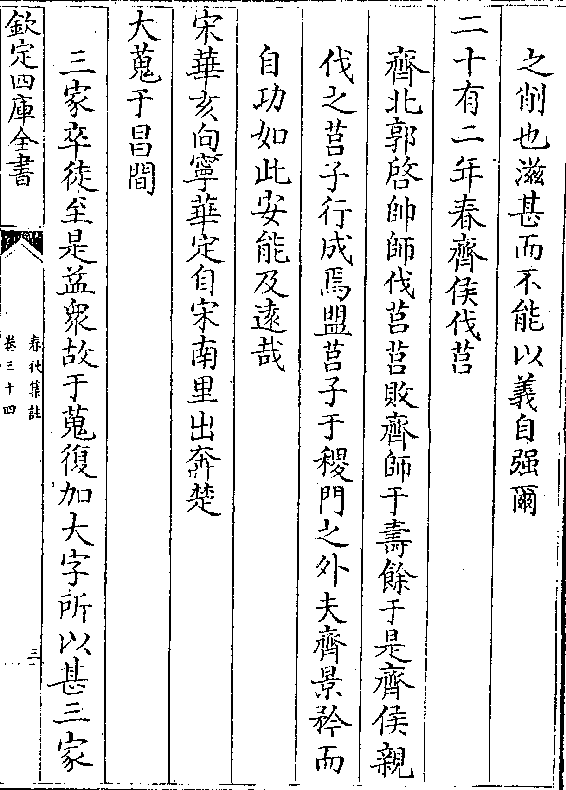 之削也滋甚而不能以義自强爾
二十有二年春齊侯伐莒
齊北郭啓帥師伐莒莒敗齊師于壽餘于是齊侯親
伐之莒子行成焉盟莒子于稷門之外夫齊景矜而
自功如此安能及遠哉
宋華亥向寧華定自宋南里出奔楚
大蒐于昌間
三家卒徒至是益衆故于蒐復加大字所以甚三家
欽定四庫全書
春秋集註
卷三十四
三